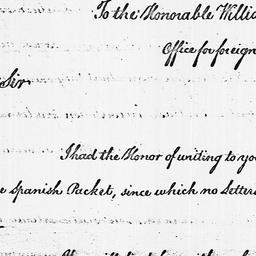 To the Honorable Willia
Office for foreign
Sir
I had the Honor of writing to yo
e Spanish Packet, since which no Letters